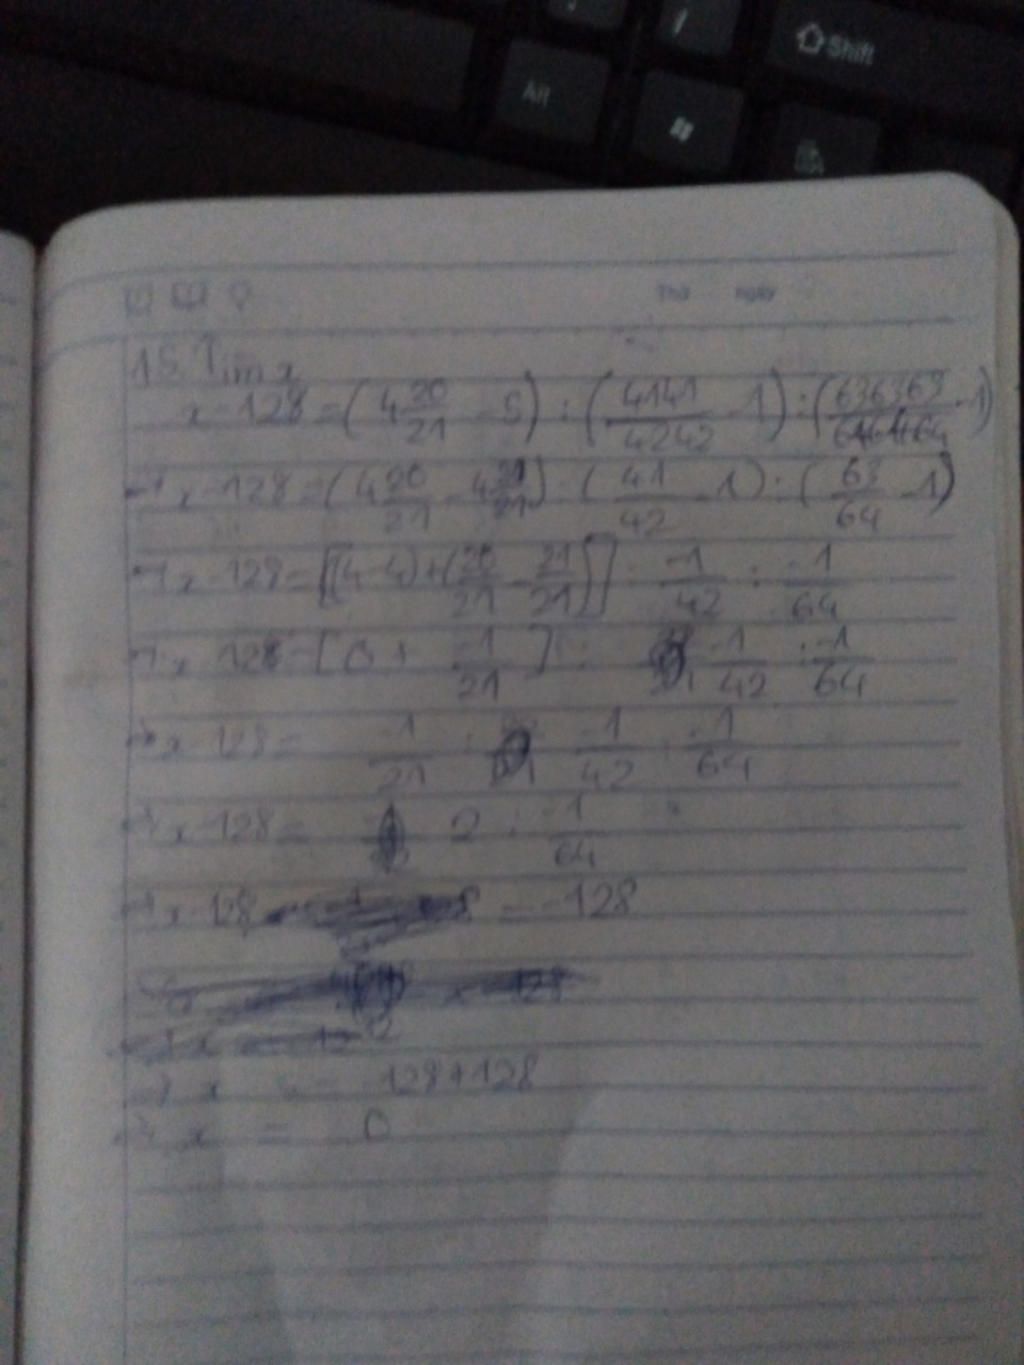 Alt
Shift
Thứ ngày
15. Tìm x
x - 128 = (4 20/21 - 5) : (4141/4242 - 1) : (636363/646464 - 1)
→ x - 128 = (4 20/21 - 4 21/21) : (41/42 - 1) : (63/64 - 1)
→ x - 128 = [(4-4) + (20/21 - 21/21)] : -1/42 : -1/64
→ x - 128 = [0 + -1/21] : -1/42 : -1/64
→ x - 128 = -1/21 : -1/42 : -1/64
→ x - 128 = 2 : -1/64
→ x - 128 = -128
→ x = -128 + 128
→ x = 0